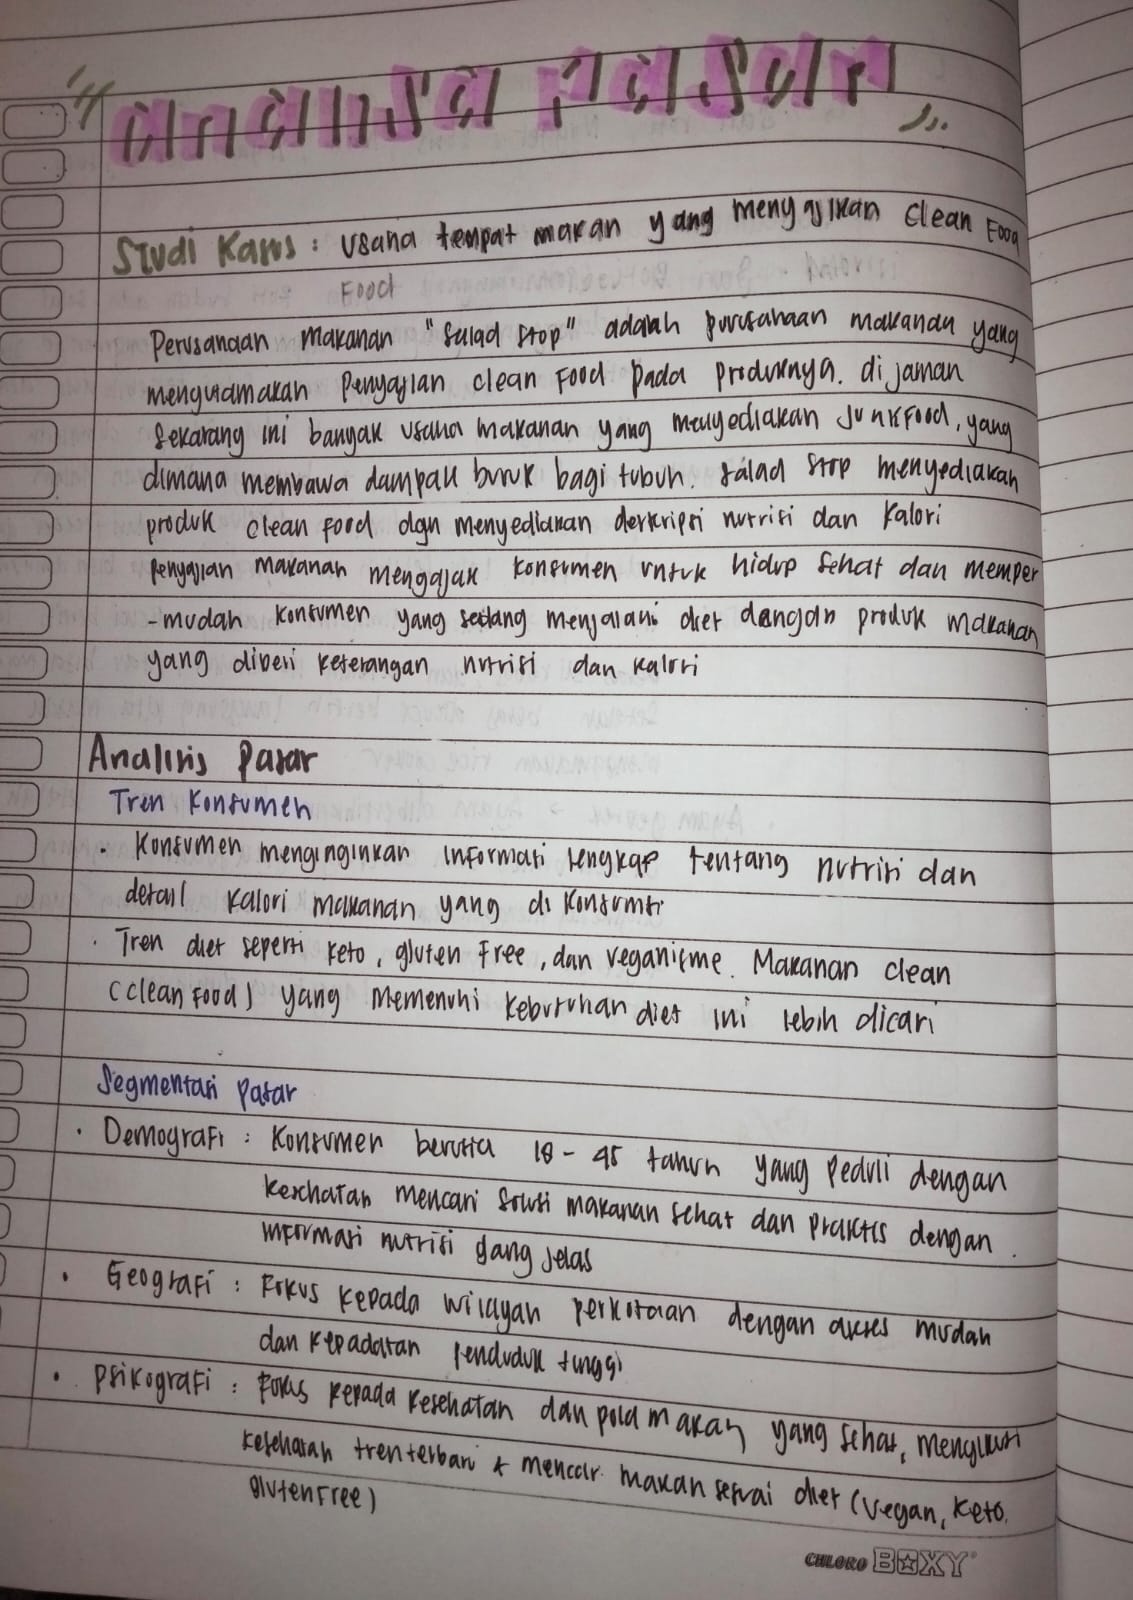 analisa Pasar
Studi Kasus : Usaha tempat makan yang menyajikan Clean Food
Food
Perusahaan makanan "Salad Stop" adalah perusahaan makanan yang
mengutamakan Penyajian clean Food pada produknya. di jaman
sekarang ini banyak usaha makanan yang menyediakan JunkFood, yang
dimana membawa dampak buruk bagi tubuh. Salad Stop menyediakan
produk clean food dgn menyediakan deskripsi nutrisi dan Kalori
penyajian makanan mengajak konsumen untuk hidup sehat dan memper
-mudah konsumen yang sedang menjalani diet dengan produk makanan
yang diberi keterangan nutrisi dan kalori
Analisis Pasar
Tren Konsumen
· Konsumen menginginkan informasi lengkap tentang nutrisi dan
detail kalori makanan yang di Konsumsi
· Tren diet seperti keto, gluten Free, dan veganisme. Makanan clean
(clean Food) yang memenuhi kebutuhan diet ini lebih dicari
Segmentasi Pasar
· Demografi : Konsumen berusia 18 - 45 tahun yang peduli dengan
kesehatan mencari solusi makanan sehat dan praktis dengan
informasi nutrisi yang jelas
· Geografi : Fokus kepada wilayah perkotaan dengan akses mudah
dan kepadatan penduduk tinggi
· Psikografi : Fokus kepada kesehatan dan pola makan yang sehat, mengikuti
kesehatan tren terbaru & mencari makan sesuai diet (Vegan, Keto,
gluten Free)
CHLORO BOXY